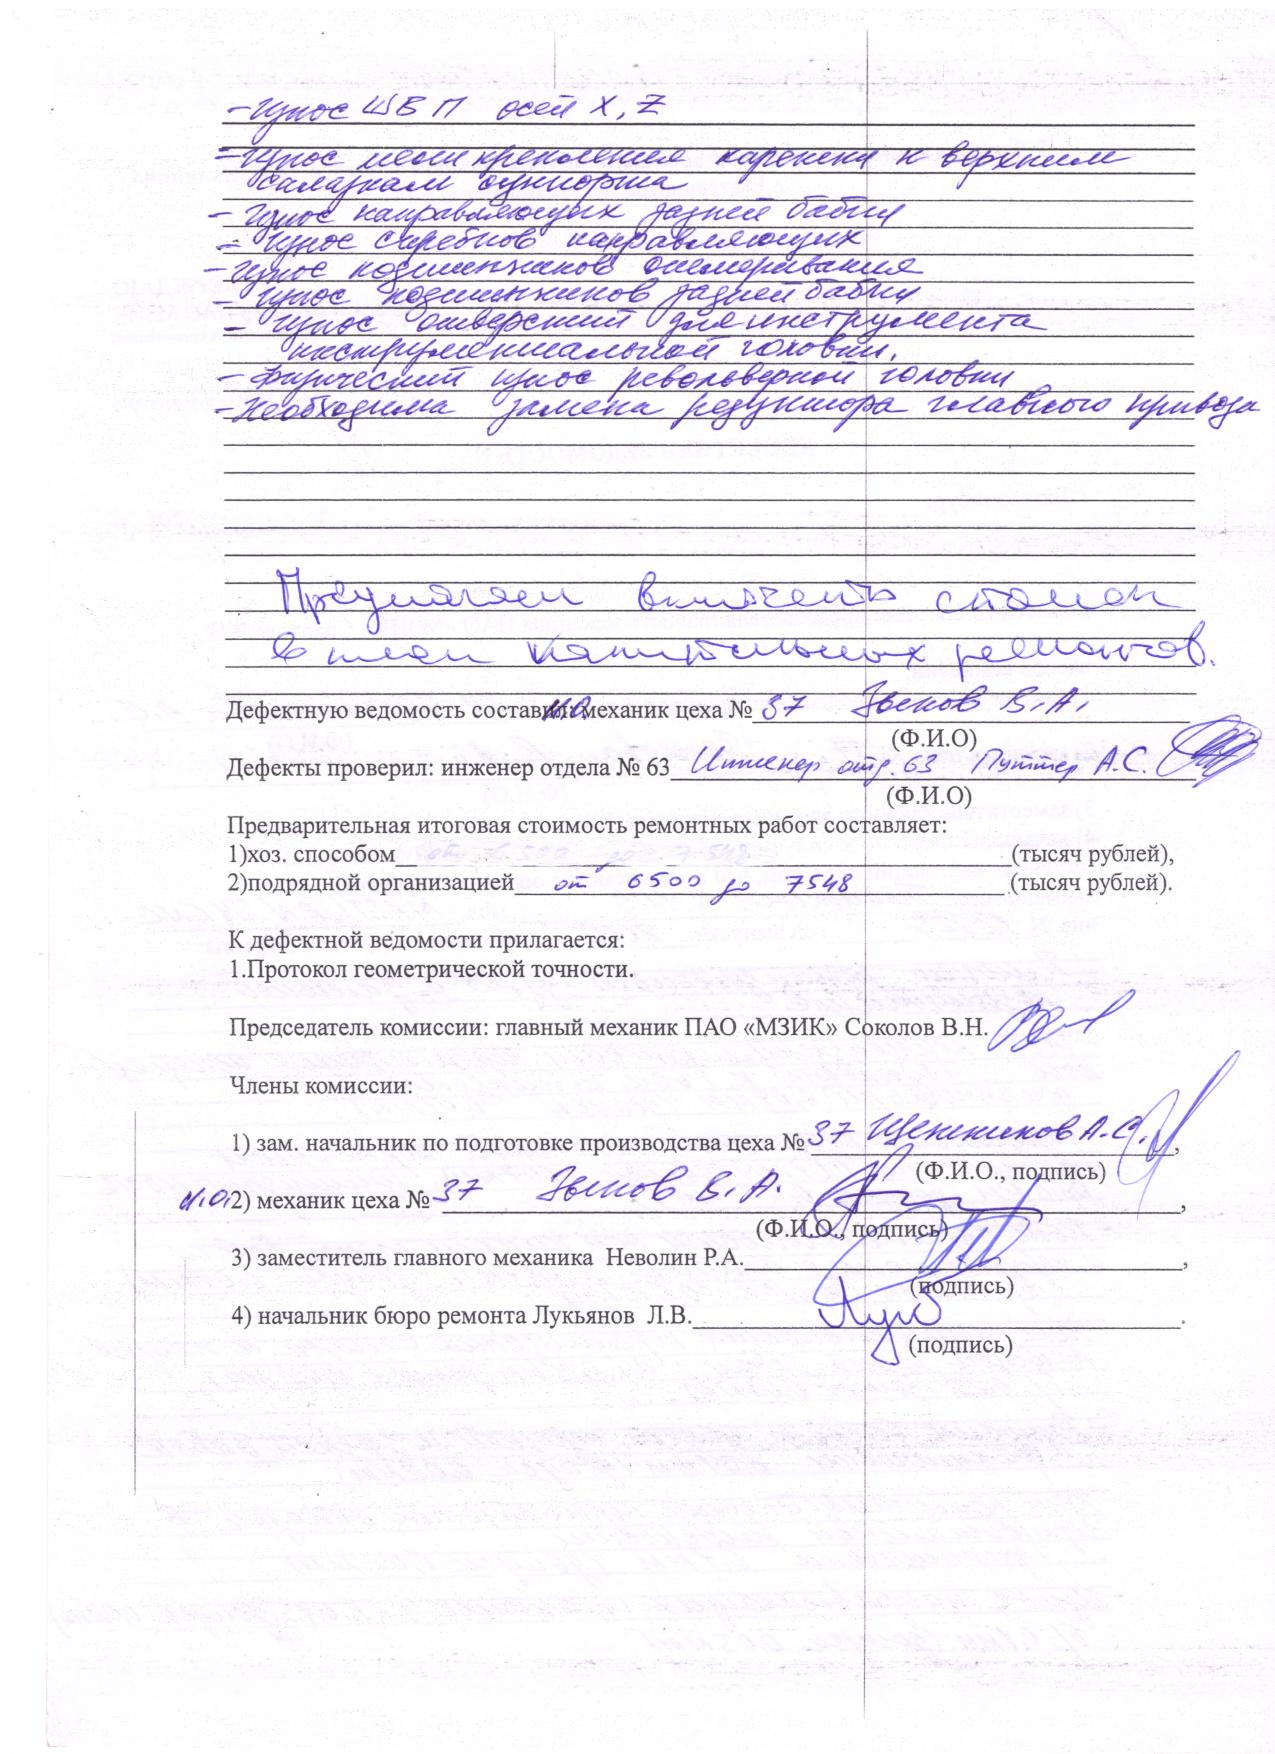 - Износ ШВП осей X, Z
- Износ мест крепления каретки к верхним
салазкам суппорта
- Износ направляющих задней бабки
- Износ скребков направляющих
- Износ подшипников
- Износ подшипников задней бабки
- Износ отверстий для инструмента
инструментальной головки.
- Физический износ револьверной головки
- Необходима замена редуктора главного привода
Предлагаем включить станок
в план капитальных ремонтов.
Дефектную ведомость составил: и.о. механик цеха № 37 Зыков В.А.
(Ф.И.О)
Дефекты проверил: инженер отдела № 63 Инженер отд. 63 Путтер А.С.
(Ф.И.О)
Предварительная итоговая стоимость ремонтных работ составляет:
1)хоз. способом от 6500 до 7548 (тысяч рублей),
2)подрядной организацией от 6500 до 7548 (тысяч рублей).
К дефектной ведомости прилагается:
1.Протокол геометрической точности.
Председатель комиссии: главный механик ПАО «МЗИК» Соколов В.Н.
Члены комиссии:
1) зам. начальник по подготовке производства цеха № 37 А.С.,
(Ф.И.О., подпись)
и.о. 2) механик цеха № 37 Зыков В.А.,
(Ф.И.О., подпись)
3) заместитель главного механика Неволин Р.А.,
(подпись)
4) начальник бюро ремонта Лукьянов Л.В.
(подпись)